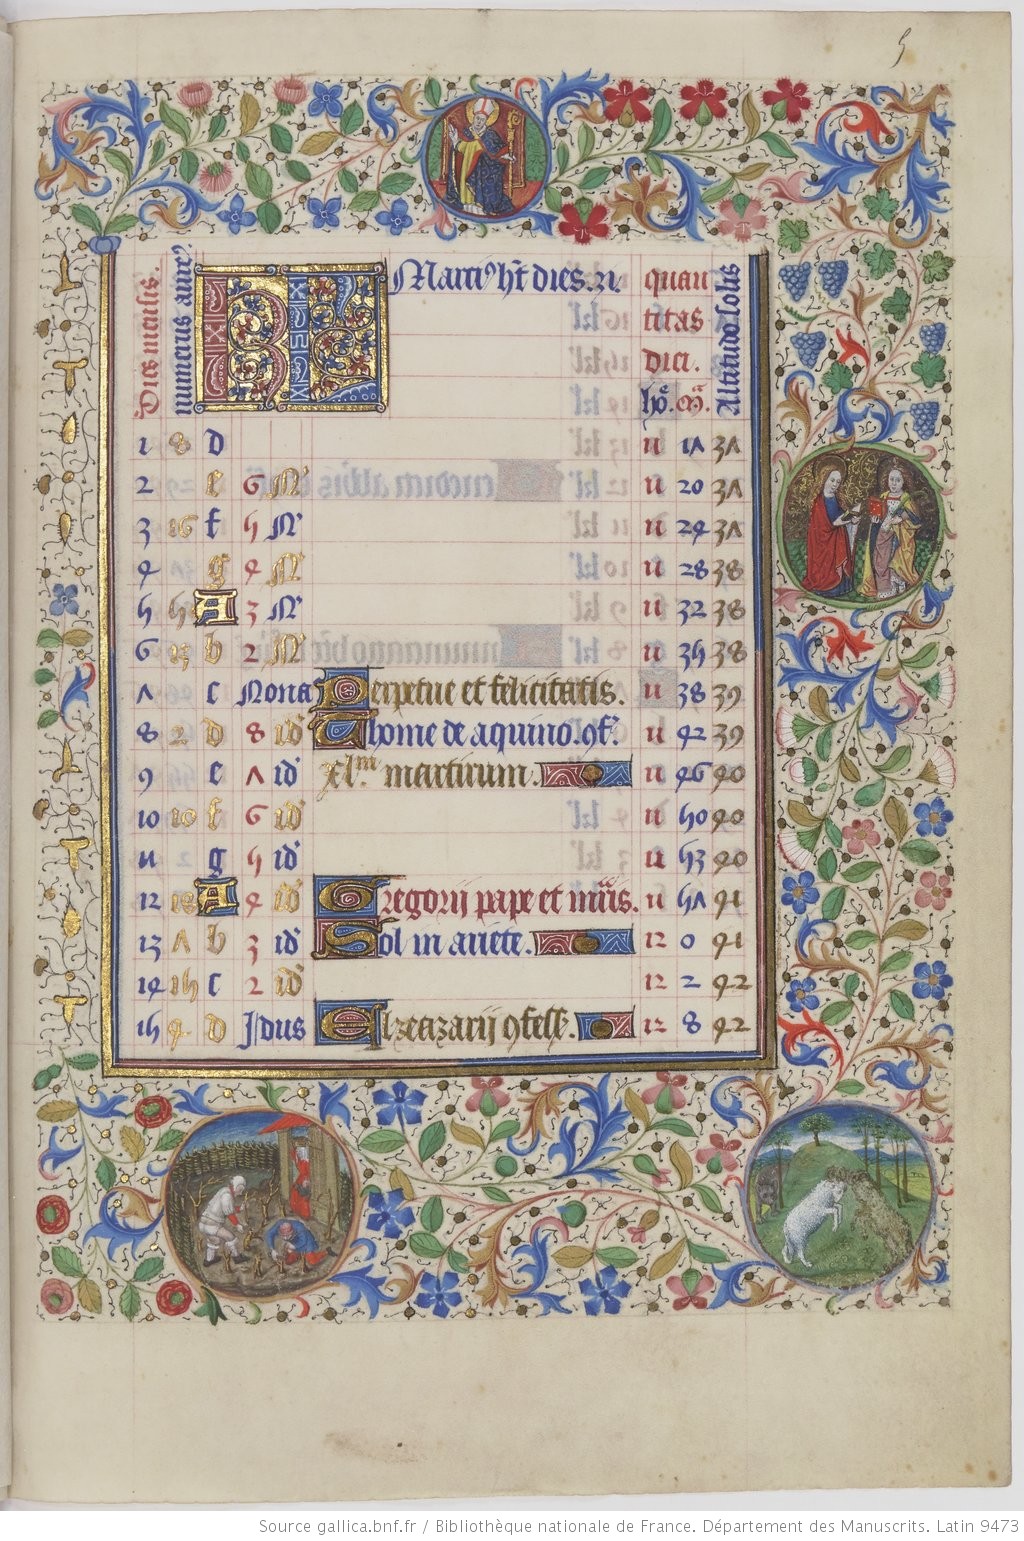 5
Dies mensis.
numerus aure⁹
KL Marci⁹ ht dies.
quan
titas
diei.
ho. m̄.
Altitudo solis
1 8 d 11 1ʌ 3ʌ
2 e 6 N⁹ 11 20 3ʌ
3 16 f 5 N⁹ 11 24 3ʌ
4 g 4 N⁹ 11 28 38
5 5 A 3 N⁹ 11 32 38
6 13 b 2 N⁹ 11 35 38
ʌ c Nona Perpetue et felicitatis. 11 38 39
8 2 d 8 id⁹ Thome de aquino. 9f. 11 42 39
9 e ʌ id⁹ xl.m martirum. 11 46 40
10 10 f 6 id⁹ 11 50 40
11 g 5 id⁹ 11 53 40
12 18 A 4 id⁹ Gregorij pape et mris. 11 5ʌ 41
13 ʌ b 3 id⁹ Sol in ariete. 12 0 41
14 15 c 2 id⁹ 12 2 42
15 4 d Idus Elzeazarij 9fess. 12 8 42
Source gallica.bnf.fr / Bibliothèque nationale de France. Département des Manuscrits. Latin 9473